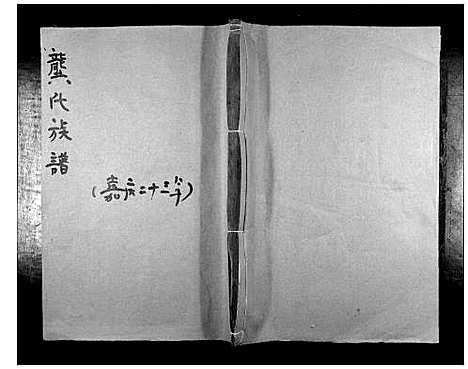 龔氏族譜
(嘉庆二十三年)